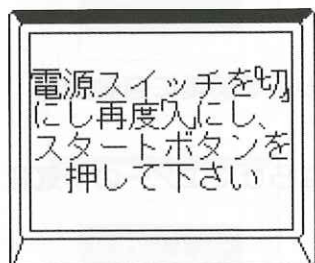 電源スイッチを｢切｣
にし再度｢入｣にし、
スタートボタンを
押して下さい